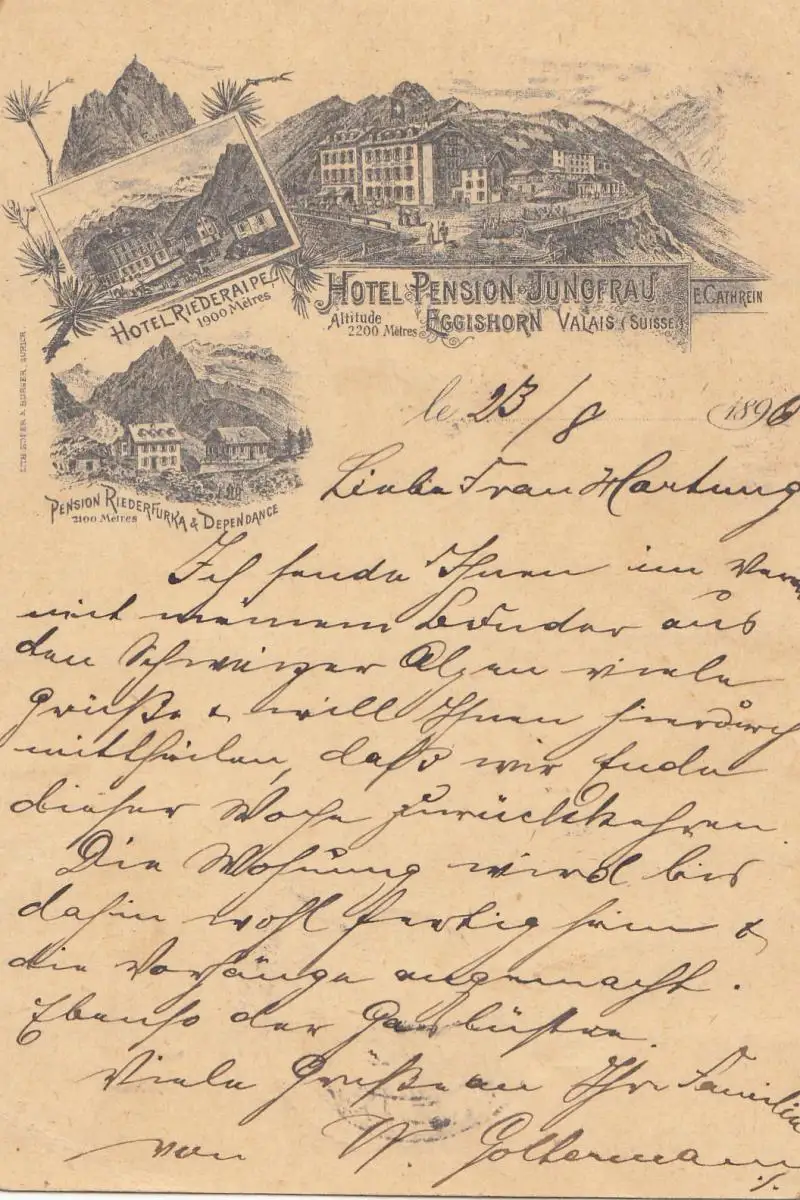 HOTEL RIEDERALPE
1900 Mètres
HOTEL PENSION JUNGFRAU
E. CATHREIN
Altitude
2200 Mètres
EGGISHORN VALAIS (SUISSE)
PENSION RIEDERFURKA & DEPENDANCE
2100 Mètres
le 23/8 1896
Liebe Frau Hartung
Ich sende Ihnen im
mit meinem Bruder aus
den Schweizer Alpen viele
Grüße & will Ihnen hierdurch
mittheilen, daß wir Ende
dieser Woche zurückkehren.
Die Wohnung wird bis
dahin wohl fertig sein &
die Vorhänge angemacht.
Ebenso der
Viele Grüße an Ihre Familie
von W. Goltermann